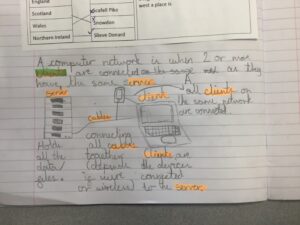 England
west a place is
Scotland
Scafell Pike
Wales
Snowdon
Northern Ireland
Slieve Donard
A computer network is when 2 or more
are connected on the same as they
have the same server.
Server
Client
A
all clients on
the same network
are connected
Cables
connecting
Holds all
all the together Clients are
data/ (depends the devices
files if wires connected
or wireless) to the server